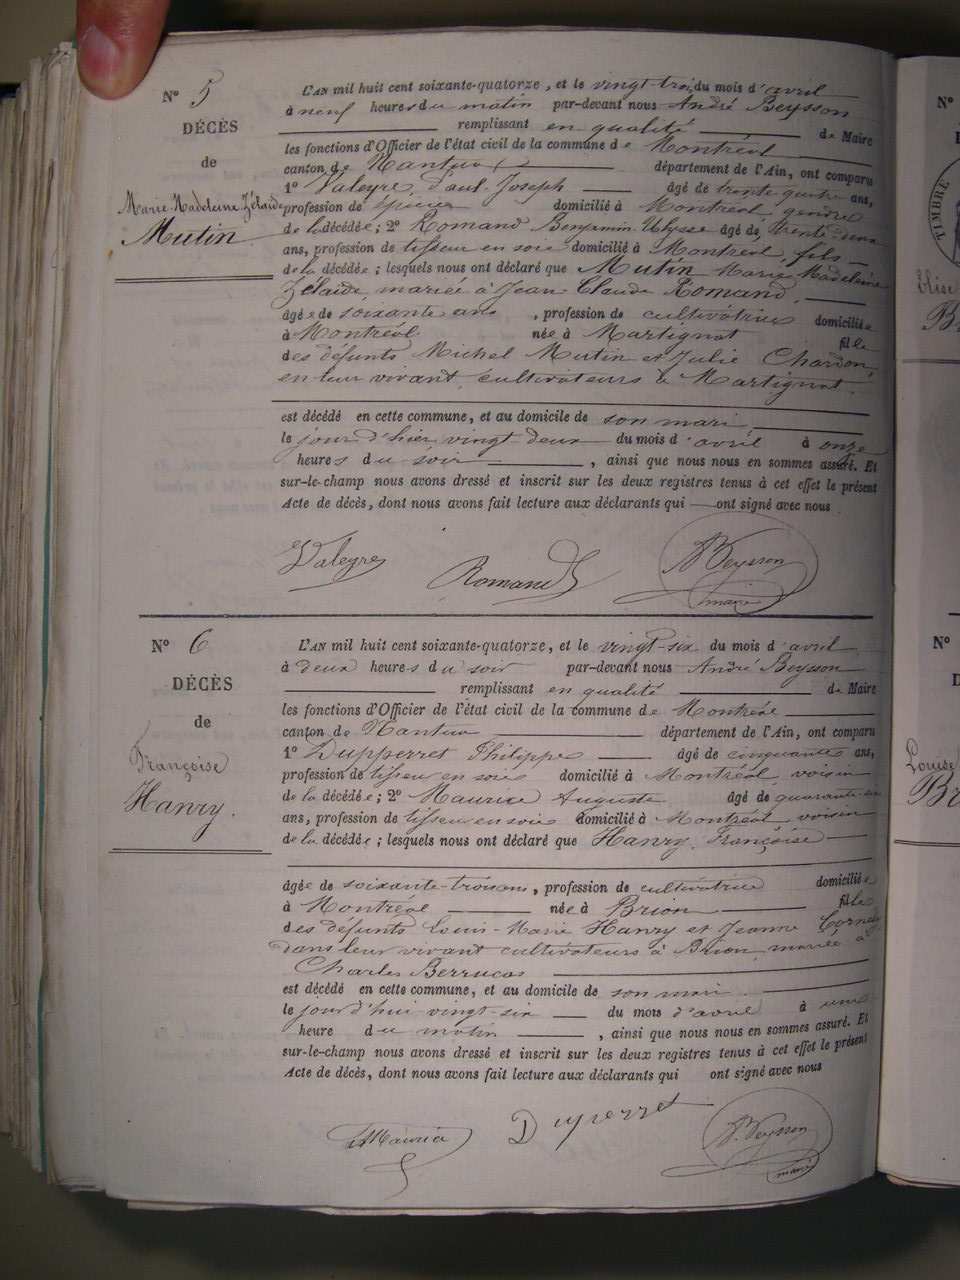 N° 5
DÉCÈS
de
Marie Madeleine Zélaïde
Mutin
L'AN mil huit cent soixante-quatorze, et le vingt-trois du mois d'avril
à neuf heures du matin par-devant nous André Beysson
remplissant en qualité de Maire
les fonctions d'Officier de l'état civil de la commune de Montréal
canton de Nantua département de l'Ain, ont comparu
1° Valeyre Paul-Joseph âgé de trente-quatre ans,
profession de épicier domicilié à Montréal gendre
de la décédée; 2° Romand Benjamin-Ulysse âgé de trente deux
ans, profession de tisseur en soie domicilié à Montréal, fils
de la décédée; lesquels nous ont déclaré que Mutin Marie Madeleine
Zélaïde, mariée à Jean Claude Romand,
âgée de soixante ans, profession de cultivatrice domiciliée
à Montréal née à Martignat fille
des défunts Michel Mutin et Julie Chardon,
en leur vivant, cultivateurs à Martignat
est décédé en cette commune, et au domicile de son mari,
le jour d'hier vingt deux du mois d'avril à onze
heures du soir, ainsi que nous nous en sommes assuré. Et
sur-le-champ nous avons dressé et inscrit sur les deux registres tenus à cet effet le présent
Acte de décès, dont nous avons fait lecture aux déclarants qui ont signé avec nous
Valeyre Romand Beysson
maire
N° 6
DÉCÈS
de
Françoise
Hanry.
L'AN mil huit cent soixante-quatorze, et le vingt-six du mois d'avril
à deux heures du soir par-devant nous André Beysson
remplissant en qualité de Maire
les fonctions d'Officier de l'état civil de la commune de Montréal
canton de Nantua département de l'Ain, ont comparu
1° Dupperret Philippe âgé de cinquante ans,
profession de tisseur en soie domicilié à Montréal voisin
de la décédée; 2° Maurice Auguste âgé de quarante
ans, profession de tisseur en soie domicilié à Montréal voisin
de la décédée; lesquels nous ont déclaré que Hanry Françoise
âgée de soixante-trois ans, profession de cultivatrice domiciliée
à Montréal née à Brion fille
des défunts Louis-Marie Hanry et Jeanne Cornely
dans leur vivant cultivateurs à Brion, mariée à
Charles Berrucas
est décédé en cette commune, et au domicile de son mari
le jour d'hui vingt-six du mois d'avril à une
heure du matin, ainsi que nous nous en sommes assuré. Et
sur-le-champ nous avons dressé et inscrit sur les deux registres tenus à cet effet le présent
Acte de décès, dont nous avons fait lecture aux déclarants qui ont signé avec nous
Maurice Duperret Beysson
maire
N°
TIMBRE
Elise
N°
Louise